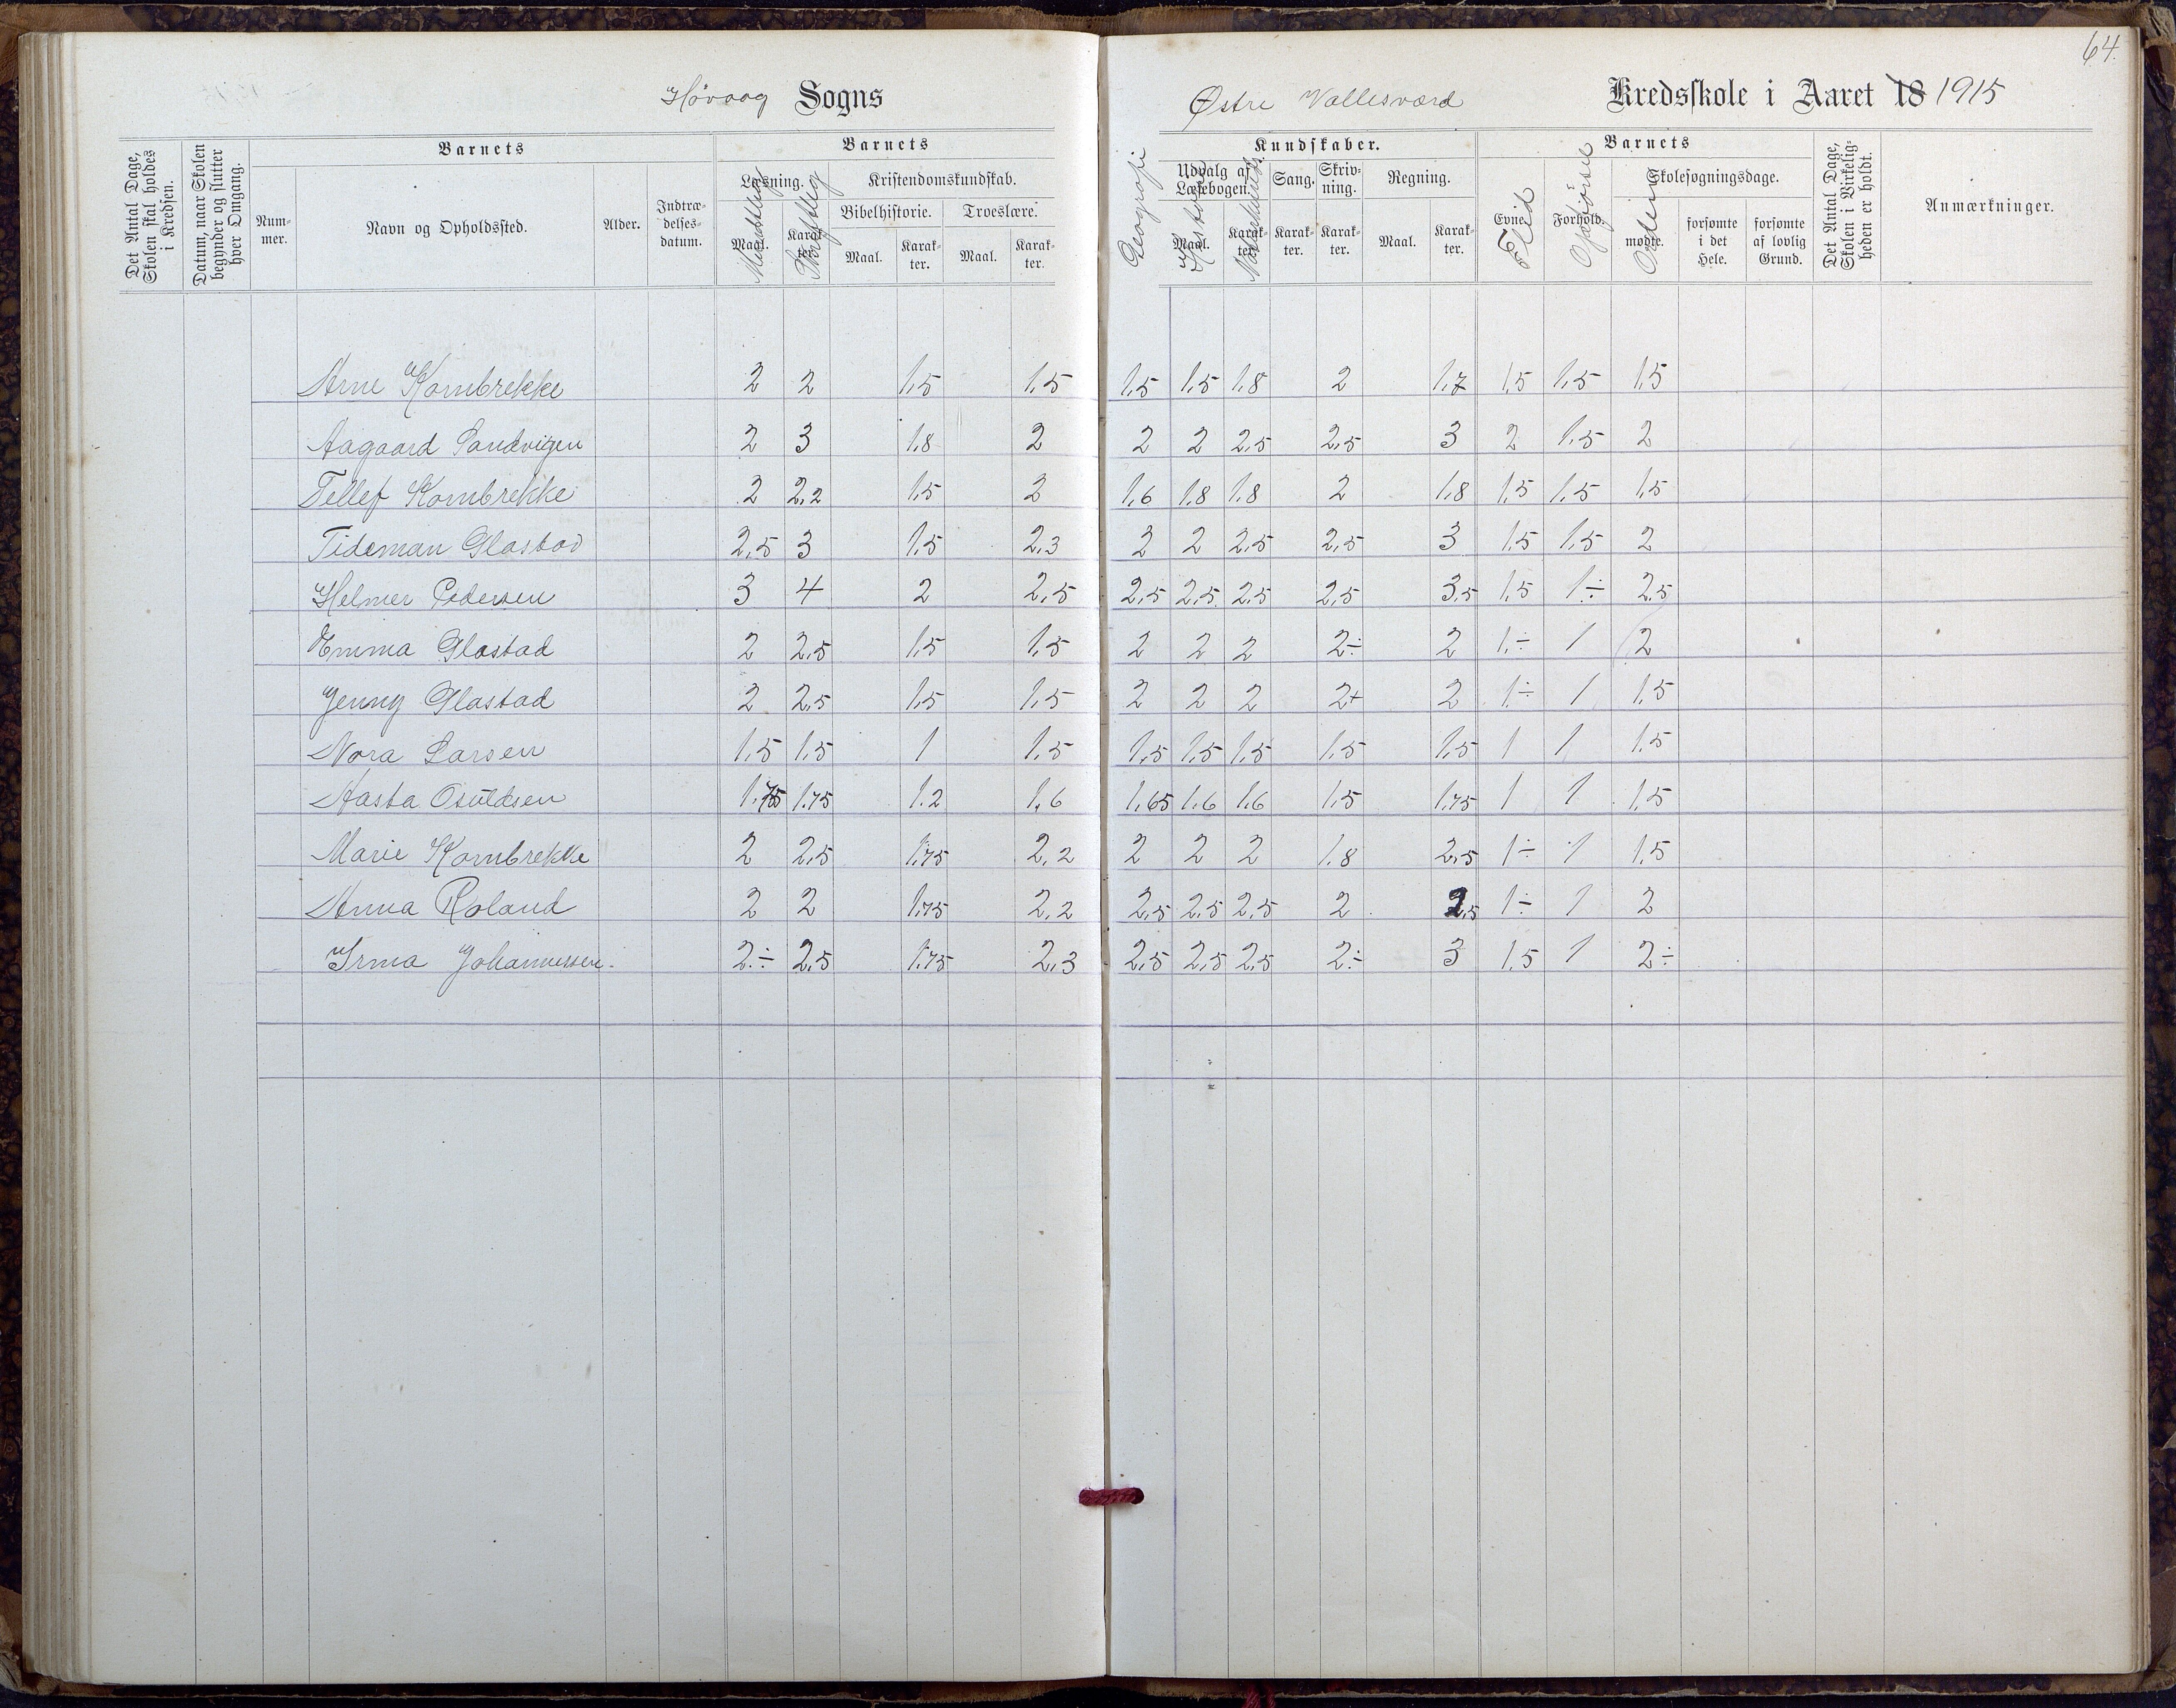 64.
Høvaag Sogns
Østre Vallesværd Kredsskole i Aaret 18 1915
Det Antal Dage, Skolen skal holdes i Kredsen.
Datum, naar Skolen begynder og slutter hver Omgang.
Barnets
Nummer.
Navn og Opholdssted.
Alder.
Indtrædelses-datum.
Barnets
Læsning.
Maal. Mundtlig
Karakter. Skriftlig
Kristendomskundskab.
Bibelhistorie.
Maal.
Karakter.
Troeslære.
Maal.
Karakter.
Geografi
Kundskaber.
Udvalg af Læsebogen.
Maal. Historie
Karakter.
Sang.
Karakter.
Skrivning.
Karakter.
Regning.
Maal.
Karakter.
Barnets
Evne. Flid
Forhold. Opførsel
Skolesøgningsdage.
mødte. Orden
forsømte i det Hele.
forsømte af lovlig Grund.
Det Antal Dage, Skolen i Virkeligheden er holdt.
Anmærkninger.
Arne Kornbrekke 2 2 1,5 1,5 1,5 1,5 1,8 2 1,7 1,5 1,5 1,5
Aagaard Sandvigen 2 3 1,8 2 2 2 2,5 2,5 3 2 1,5 2
Tellef Kornbrekke 2 2,2 1,5 2 1,6 1,8 1,8 2 1,8 1,5 1,5 1,5
Tideman Glastad 2,5 3 1,5 2,3 2 2 2,5 2,5 3 1,5 1,5 2
Helmer Pedersen 3 4 2 2,5 2,5 2,5 2,5 2,5 3,5 1,5 1÷ 2,5
Emma Glastad 2 2,5 1,5 1,5 2 2 2 2÷ 2 1÷ 1 2
Jenny Glastad 2 2,5 1,5 1,5 2 2 2 2+ 2 1÷ 1 1,5
Nora Larsen 1,5 1,5 1 1,5 1,5 1,5 1,5 1,5 1,5 1 1 1,5
Aasta Osuldsen 1,75 1,75 1.2 1,6 1,65 1,6 1,6 1,5 1,75 1 1 1,5
Marie Kornbrekke 2 2,5 1,75 2,2 2 2 2 1,8 2,5 1÷ 1 1,5
Anna Roland 2 2 1,75 2,2 2,5 2,5 2,5 2 2,5 1÷ 1 2
Irma Johannessen. 2÷ 2,5 1,75 2,3 2,5 2,5 2,5 2÷ 3 1,5 1 2÷